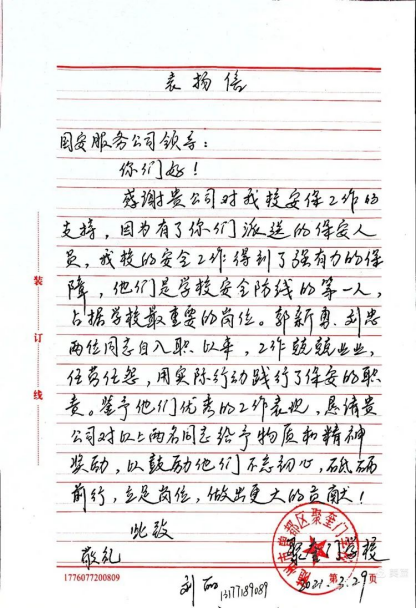 表扬信
国安服务公司领导：
你们好！
感谢贵公司对我校安保工作的
支持，因为有了你们派送的保安人
员，我校的安全工作得到了强有力的保
障，他们是学校安全防线的第一人，
占据学校最重要的岗位。郭新勇、刘忠
两位同志自入职以来，工作兢兢业业，
任劳任怨，用实际行动践行了保安的职
责。鉴于他们优秀的工作表现，恳请贵
公司对以上两名同志给予物质和精神
奖励，以鼓励他们不忘初心，砥砺
前行，立足岗位，做出更大的贡献！
此致
敬礼
聚奎门学校
1776077200809
第 页
刘丽 13177189089
2021.3.29
装
订
线
都区聚奎门